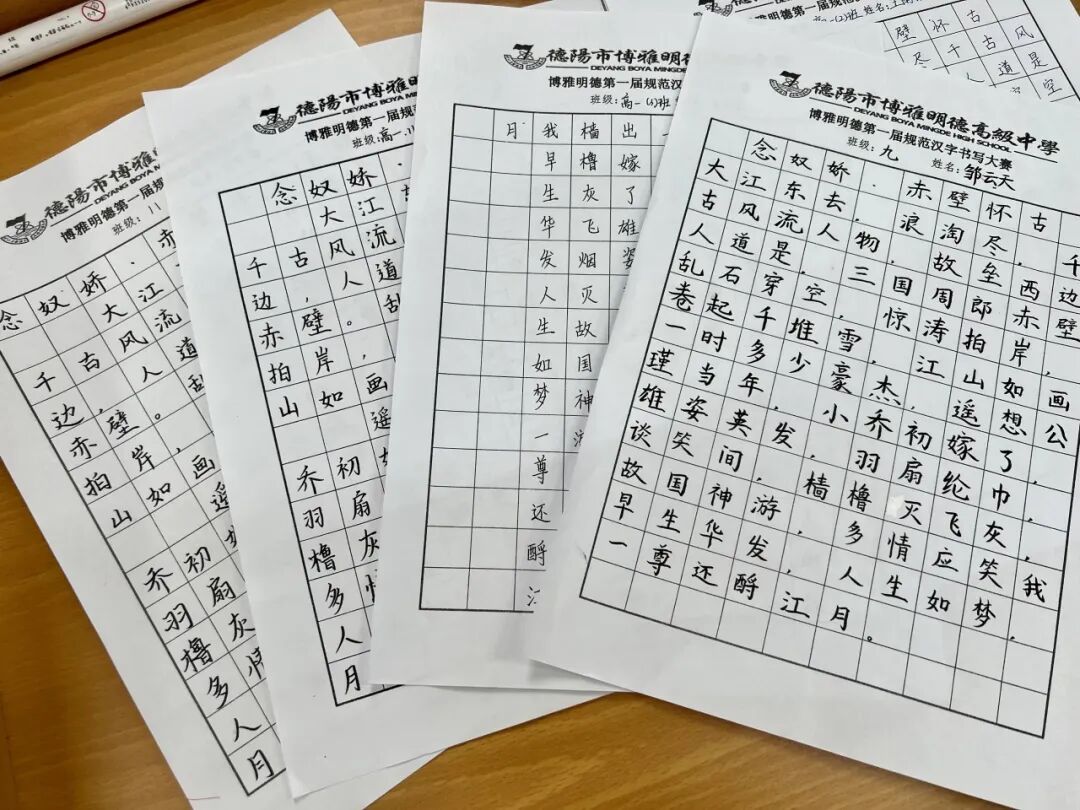 德陽市博雅明德
DEYANG BOYA MINGDE
博雅明德第一届规
班级: 11
念奴娇·赤
大江
千古风流
边,人道
赤壁。乱
拍岸,
山如画
遥
乔初
羽扇
橹灰
多情
人
月
德陽市博雅明
DEYANG BOYA MING
博雅明德第一届规
班级: 高一.11
念奴娇·
大江
千古风流
边,人道
赤壁。乱
拍岸,
山如画
遥
乔初
羽扇
橹灰
多
人
月
德陽市博雅明德
DEYANG BOYA MINGDE
博雅明德第一届规范汉
班级:高一
出嫁了雄姿
樯橹灰飞烟灭故国神游
我早生华发人生如梦一尊还酹江
月
壁怀古
尽千古风
人道是
空
德陽市博雅明德高級中學
DEYANG BOYA MINGDE HIGH SCHOOL
博雅明德第一届规范汉字书写大赛
班级: 九 姓名: 邹云天
念奴娇·赤壁怀古
大江东去,浪淘尽,千
古风流人物,故垒西边
人道是,三国周郎赤壁
乱石穿空,惊涛拍岸,
卷起千堆雪,江山如画
一时多少豪杰,遥想公
瑾当年,小乔初嫁了,
雄姿英发,羽扇纶巾,
谈笑间,樯橹灭飞灰,
故国神游,多情应笑我
早生华发,人生如梦,
一尊还酹江月。